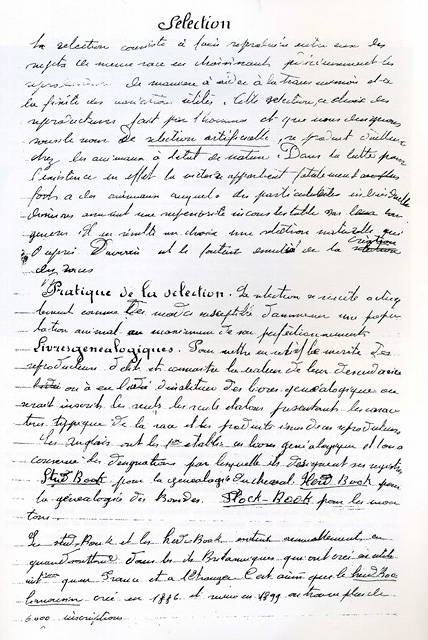 Sélection
La sélection consiste à faire reproduire entre eux des
sujets de même race en choisissant précieusement les
reproducteurs de manière à aider à la transmission et à
la fixité des variations utiles. Cette sélection, ce choix des
reproducteurs fait par l'homme et que nous désignons
sous le nom de sélection artificielle, se produit d'ailleurs
chez les animaux à l'état de nature. Dans la lutte pour
l'existence en effet la victoire appartient fatalement aux plus
forts a des animaux auxquels des particularités individuelles
assurent une supériorité incontestable sur leurs
Il en résulte un choix une sélection naturelle qui
d'après Darwin est le facteur de la création
des races
Pratique de la sélection. La sélection se
comme des modes susceptible d'amener une popu-
lation animal au maximum de son perfectionnement
Livres généalogiques. Pour mettre en relief le mérite des
reproducteurs d'élite et connaître la valeur de leur descendance
on a eu l'idée d'instituer des livres généalogiques ou
seront inscrits les seuls, les seuls étalons présentant les carac-
tères typique de la race et les produits issus de ces reproducteurs
Les Anglais ont les 1er établis un livres généalogique et l'on a
conservé les désignations par lesquelle ils désignent ses registres
Stud Book pour la généalogie du cheval Herd Book pour
la généalogie des Bovidés. Flock-Book pour les mou
tons.
Le stud-Book et les herd-Book
dans les île Britanniques, qui ont créé
en France et a l'étranger C'est ainsi que le herd Boo
Limousin créé en 1886 et en 1899 on trouve plus de
6.000 inscriptions